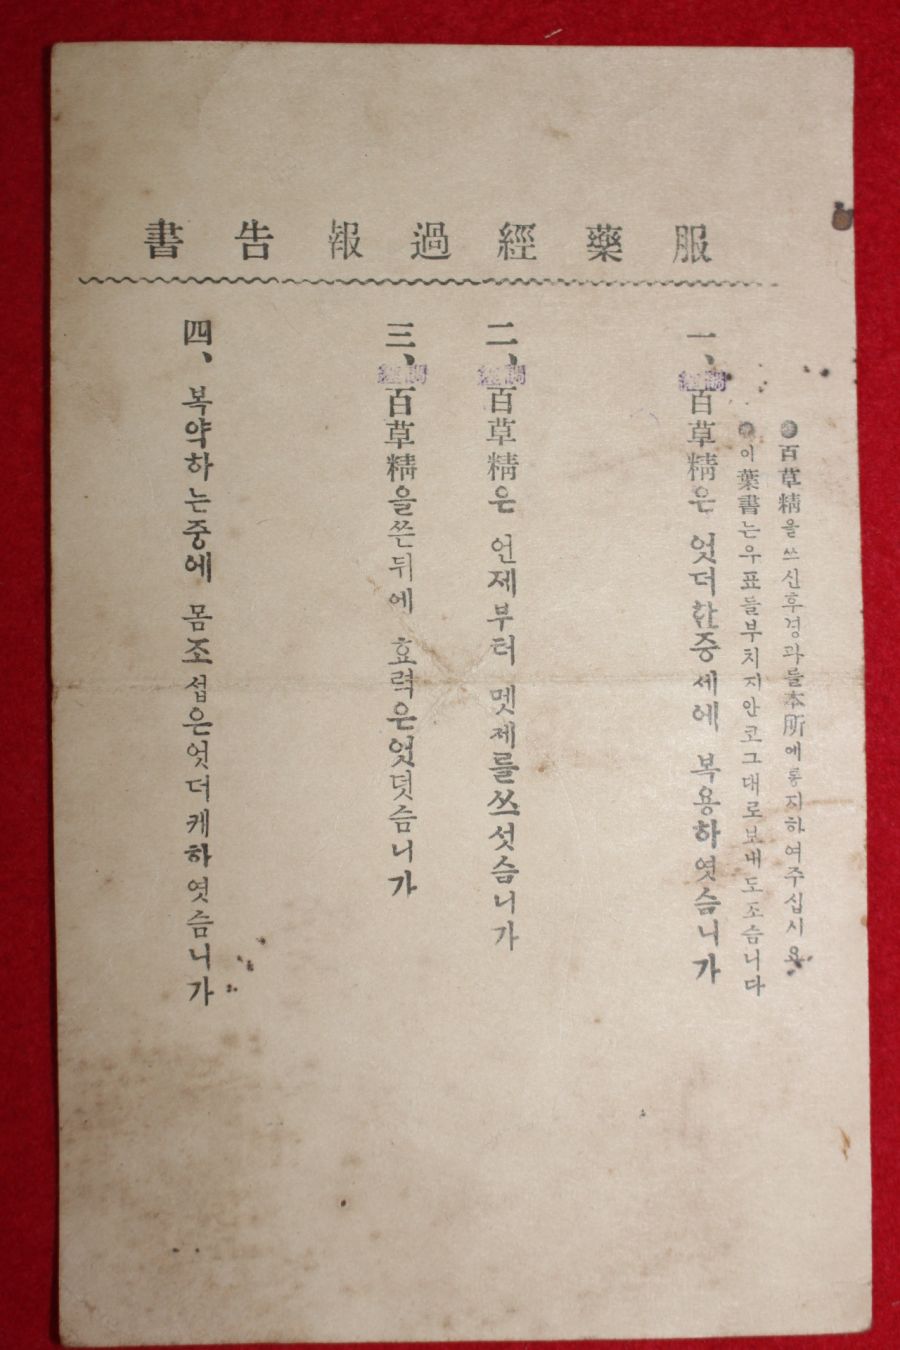 服藥經過報告書
●百草精을쓰신후경과를本所에통지하여주십시요
●이葉書는우표를부치지안코그대로보내도조슴니다
一、調經百草精은 엇더한증세에 복용하엿슴니가
二、調經百草精은 언제부터 몟제를쓰섯슴니가
三、調經百草精을쓴뒤에 효력은엇덧슴니가
四、복약하는중에 몸조섭은엇더케하엿슴니가